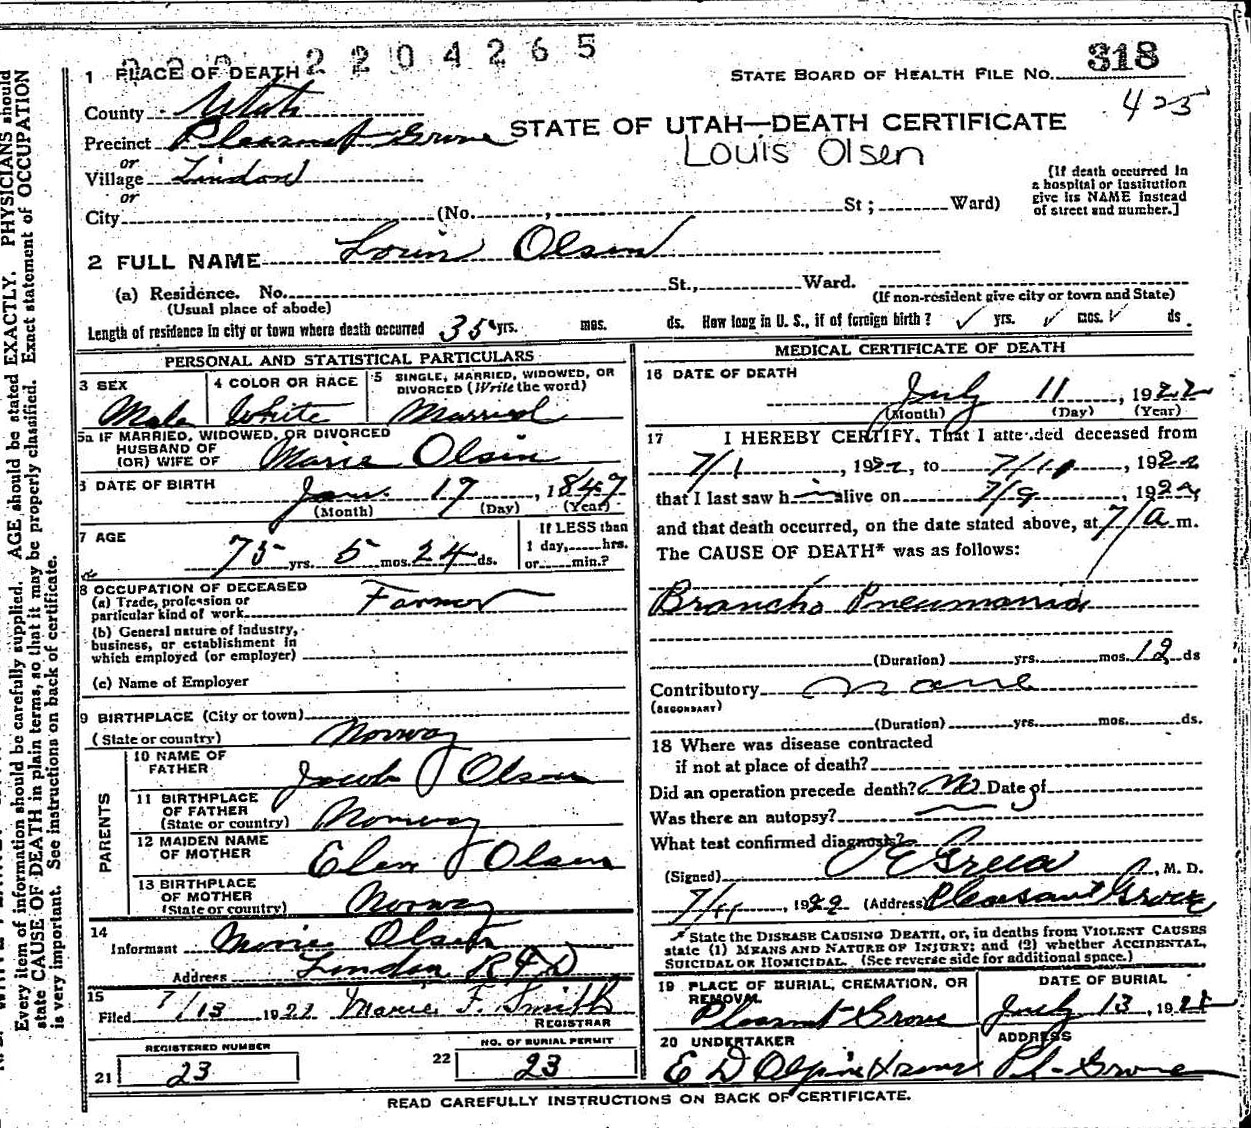 2204265
318
1 PLACE OF DEATH
STATE BOARD OF HEALTH FILE No.
425
County Utah
Precinct Pleasant Grove
STATE OF UTAH—DEATH CERTIFICATE
Louis Olsen
or
Village Lindon
or
City (No. , St ; Ward)
[If death occurred in
a hospital or institution
give its NAME instead
of street and number.]
2 FULL NAME Louis Olsen
(a) Residence. No. St., Ward.
(Usual place of abode)
(If non-resident give city or town and State)
Length of residence in city or town where death occurred 35 yrs. mos. ds. How long in U. S., if of foreign birth ? ✓ yrs. ✓ mos. ✓ ds.
PERSONAL AND STATISTICAL PARTICULARS
3 SEX
Male
4 COLOR OR RACE
White
5 SINGLE, MARRIED, WIDOWED, OR
DIVORCED (Write the word)
Married
5a IF MARRIED, WIDOWED, OR DIVORCED
HUSBAND OF
(OR) WIFE OF Marie Olsen
6 DATE OF BIRTH Jan. 17, 1847
(Month) (Day) (Year)
7 AGE
75 yrs. 5 mos. 24 ds.
If LESS than
1 day, hrs.
or min.?
8 OCCUPATION OF DECEASED
(a) Trade, profession or
particular kind of work Farmer
(b) General nature of industry,
business, or establishment in
which employed (or employer)
(c) Name of Employer
9 BIRTHPLACE (City or town)
(State or country) Norway
PARENTS
10 NAME OF
FATHER Jacob Olsen
11 BIRTHPLACE
OF FATHER
(State or country) Norway
12 MAIDEN NAME
OF MOTHER Elen Olsen
13 BIRTHPLACE
OF MOTHER
(State or country) Norway
14
Informant Marie Olsen
Address Lindon RFD
15
Filed 7/13 1922 Marie F. Smith
REGISTRAR
REGISTERED NUMBER
21 23
NO. OF BURIAL PERMIT
22 23
MEDICAL CERTIFICATE OF DEATH
16 DATE OF DEATH
July 11, 1922
(Month) (Day) (Year)
17 I HEREBY CERTIFY, That I attended deceased from
7/1, 1922, to 7/10, 1922
that I last saw him alive on 7/9, 1922,
and that death occurred, on the date stated above, at 7/a m.
The CAUSE OF DEATH* was as follows:
Broncho Pneumonia
(Duration) yrs. mos. 12 ds
Contributory None
(SECONDARY)
(Duration) yrs. mos. ds.
18 Where was disease contracted
if not at place of death?
Did an operation precede death? No Date of
Was there an autopsy?
What test confirmed diagnosis?
(Signed) , M. D.
7/11, 1922 (Address) Pleasant Grove
* State the DISEASE CAUSING DEATH, or, in deaths from VIOLENT CAUSES
state (1) MEANS AND NATURE OF INJURY; and (2) whether ACCIDENTAL,
SUICIDAL OR HOMICIDAL. (See reverse side for additional space.)
19 PLACE OF BURIAL, CREMATION, OR
REMOVAL
Pleasant Grove
DATE OF BURIAL
July 13, 1922
20 UNDERTAKER
E D Olpin
ADDRESS
Pl-Grove
READ CAREFULLY INSTRUCTIONS ON BACK OF CERTIFICATE.
Every item of information should be carefully supplied. AGE should be stated EXACTLY. PHYSICIANS should
state CAUSE OF DEATH in plain terms, so that it may be properly classified. Exact statement of OCCUPATION
is very important. See instructions on back of certificate.